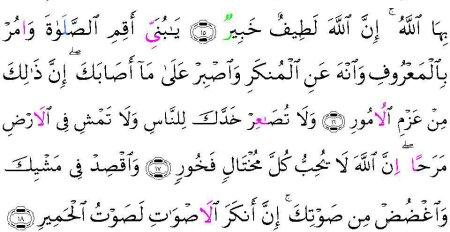 بِهَا اَللَّهُ ۚ إِنَّ اَللَّهَ لَطِيفٌ خَبِيرٌ ١٥ يَـٰبُنَيِّ أَقِمِ اِلصَّلَوٰةَ وَامُرْ
بِالْمَعْرُوفِ وَانْهَ عَنِ اِلْمُنكَرِ وَاصْبِرْ عَلَىٰ مَآ أَصَابَكَ ۖ إِنَّ ذَٰلِكَ
مِنْ عَزْمِ اِلُامُورِ ١٦ وَلَا تُصَـٰعِرْ خَدَّكَ لِلنَّاسِ وَلَا تَمْشِ فِي اِلَارْضِ
مَرَحًا ۖ اِنَّ اَللَّهَ لَا يُحِبُّ كُلَّ مُخْتَالٍ فَخُورٍ ١٧ وَاقْصِدْ فِي مَشْيِكَ
وَاغْضُضْ مِن صَوْتِكَ ۚ إِنَّ أَنكَرَ اَلَاصْوَٰتِ لَصَوْتُ اُلْحَمِيرِ ١٨